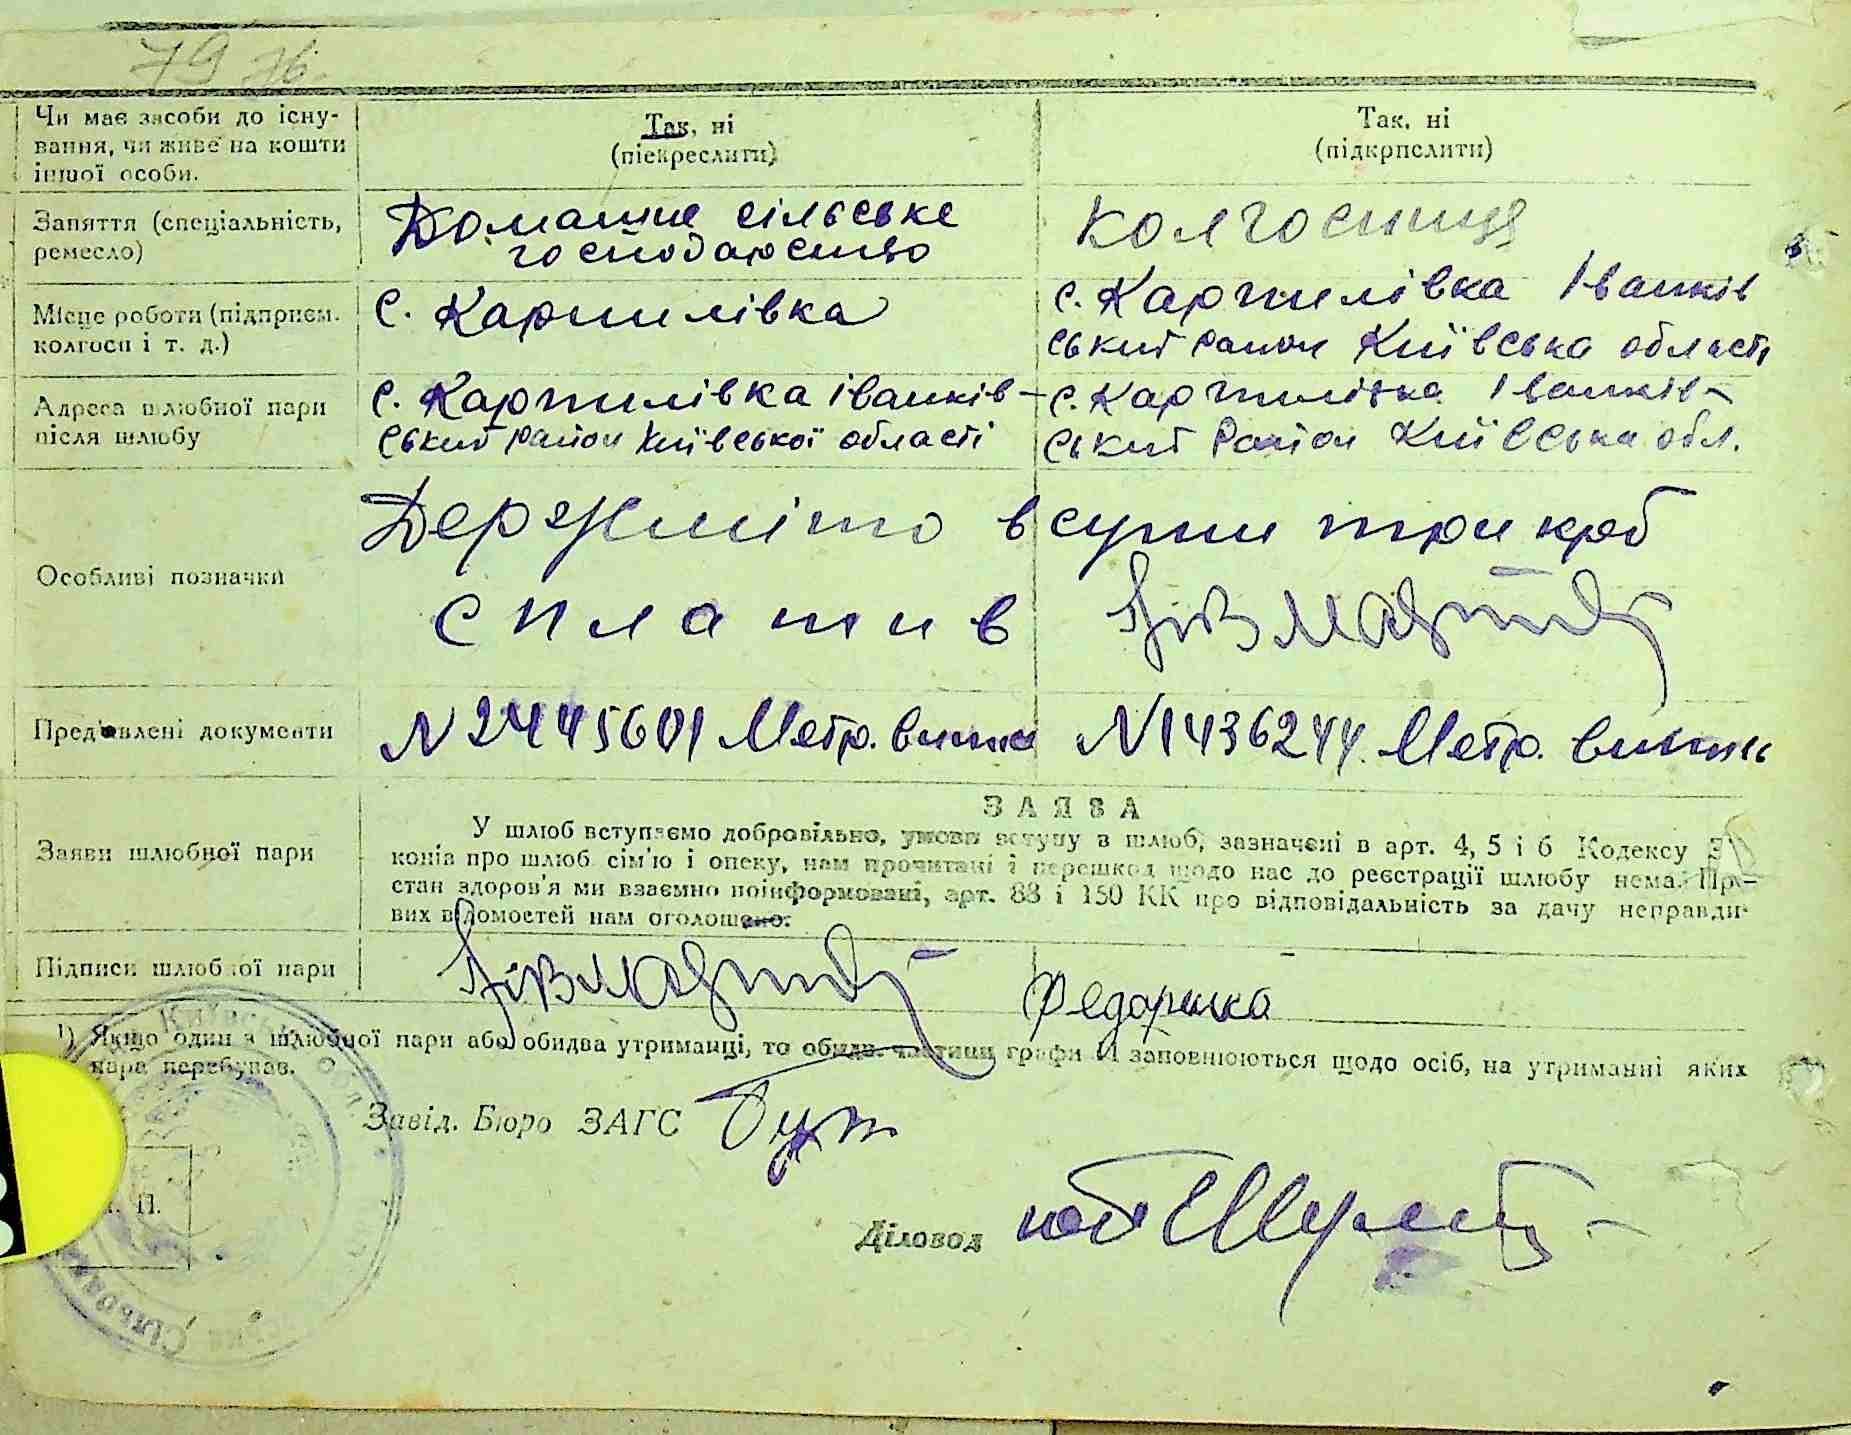 79 зв.
Чи має засоби до існу-
вання, чи живе на кошти
іншої особи.
Так, ні
(піекреслити)
Так, ні
(підкрпслити)
Заняття (спеціальність,
ремесло)
Домашнє сільське
господарство
колгосниця
Місце роботи (підприєм.
колгосп і т. д.)
с. Карпилівка
с. Карпилівка Іванків
ський район Київська області
Адреса шлюбної пари
після шлюбу
с. Карпилівка іванків-
ський район Київської області
с. Карпилівка Іванків-
ський район Київська обл.
Особливі позначки
Держмито в сумі три крб
сплатив
Пред'явлені документи
N 2445601 Метр. випис
N 1436244. Метр. випись
ЗАЯВА
У шлюб вступаємо добровільно, умови вступу в шлюб, зазначені в арт. 4, 5 і 6 Кодексу З
конів про шлюб сім'ю і опеку, нам прочитані і перешкод щодо нас до реєстрації шлюбу нема. Пр
стан здоров'я ми взаємно поінформовані, арт. 88 і 150 КК про відповідальність за дачу неправди-
вих відомостей нам оголошено.
Заяви шлюбної пари
Підписи шлюбної пари
Федорика
¹) Якщо один з шлюбної пари або обидва утриманці, то обидв. частини графи заповнюються щодо осіб, на утриманні яких
пара перебуває.
Завід. Бюро ЗАГС
П.
Діловод